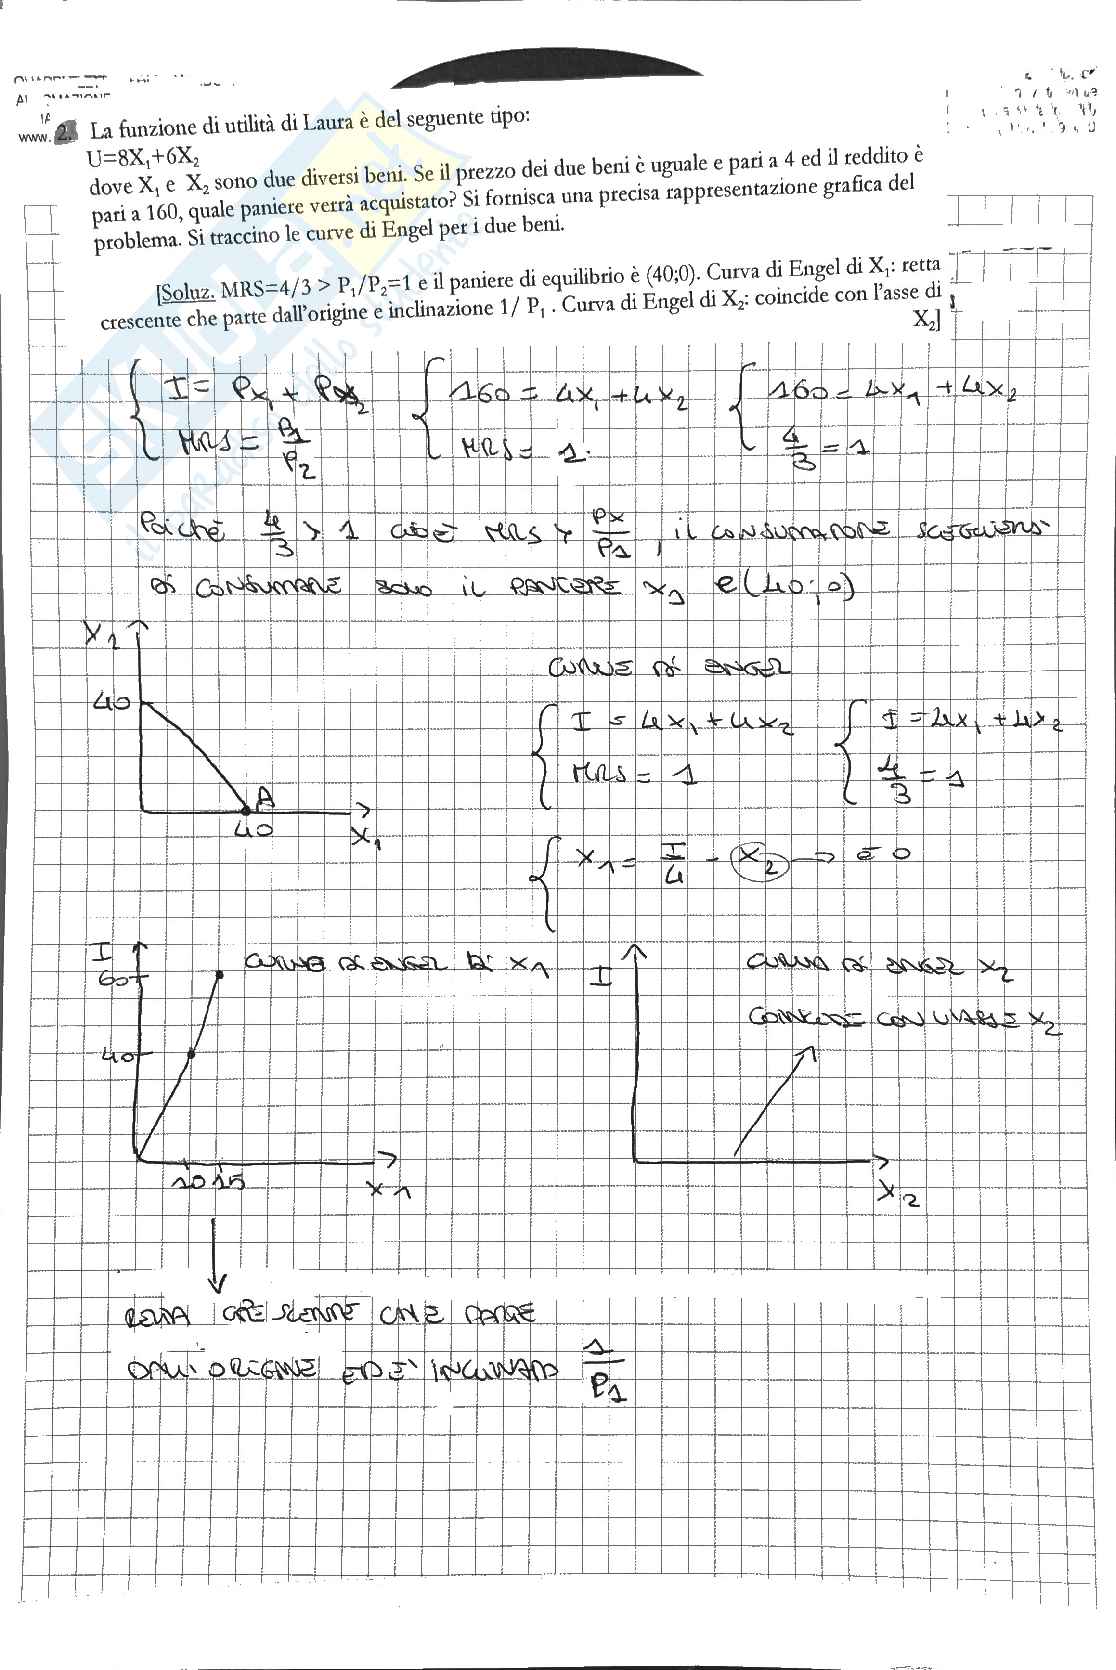 www. 2. La funzione di utilità di Laura è del seguente tipo:
U=8X₁+6X₂
dove X₁ e X₂ sono due diversi beni. Se il prezzo dei due beni è uguale e pari a 4 ed il reddito è
pari a 160, quale paniere verrà acquistato? Si fornisca una precisa rappresentazione grafica del
problema. Si traccino le curve di Engel per i due beni.
[Soluz. MRS=4/3 > P₁/P₂=1 e il paniere di equilibrio è (40;0). Curva di Engel di X₁: retta
crescente che parte dall'origine e inclinazione 1/ P₁ . Curva di Engel di X₂: coincide con l'asse di
X₂]
I = Px₁ + Px₂ 160 = 4x₁ + 4x₂ 160 = 4x₁ + 4x₂
MRS = P₁/P₂ MRS = 1. 4/3 = 1
Poiché 4/3 > 1 cioè MRS > Px/P₁, il CONSUMATORE SCEGLIERÀ
di CONSUMARE solo il PANIERE x₁ e(40;0)
X₂
40
A
40
X₁
CURVE DI ENGEL
I = 4x₁ + 4x₂ I = 4x₁ + 4x₂
MRS = 1 4/3 = 1
x₁ = I/4 - x₂ → è 0
I
60
40
10 15
x₁
CURVA DI ENGEL DI X₁
I
CURVA DI ENGEL X₂
COINCIDE CON L'ASSE X₂
X₂
RETTA CRESCENTE CHE PARTE
DALL'ORIGINE ED È INCLINATA 1/P₁